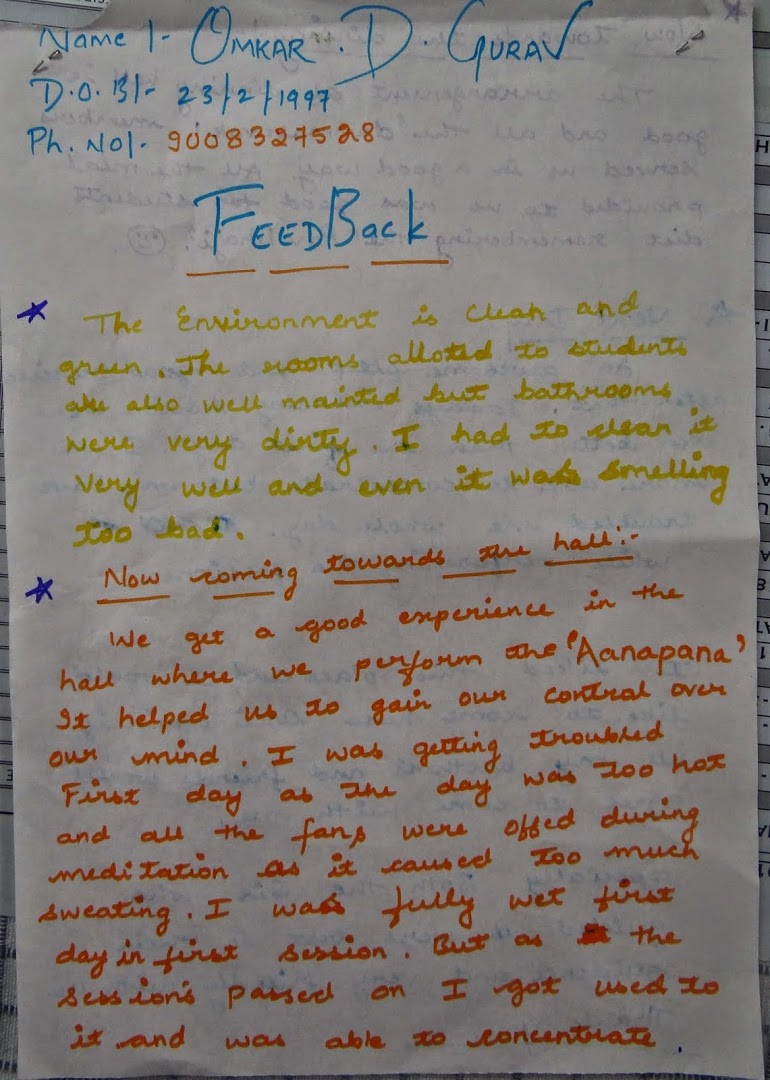 Name :- OMKAR . D. GURAV
D.O.B :- 23/2/1997
Ph. No :- 9008327528
FEEDBack
The Environment is clean and
green. The rooms alloted to students
are also well mainted but bathrooms
were very dirty. I had to clean it
very well and even it was smelling
too bad.
Now coming towards the hall:-
We get a good experience in the
hall where we perform the 'Aanapana'
It helped us to gain our control over
our mind. I was getting troubled
First day as the day was too hot
and all the fans were offed during
meditation as it caused too much
sweating. I was fully wet first
day in first session. But as the
sessions passed on I got used to
it and was able to concentrate.